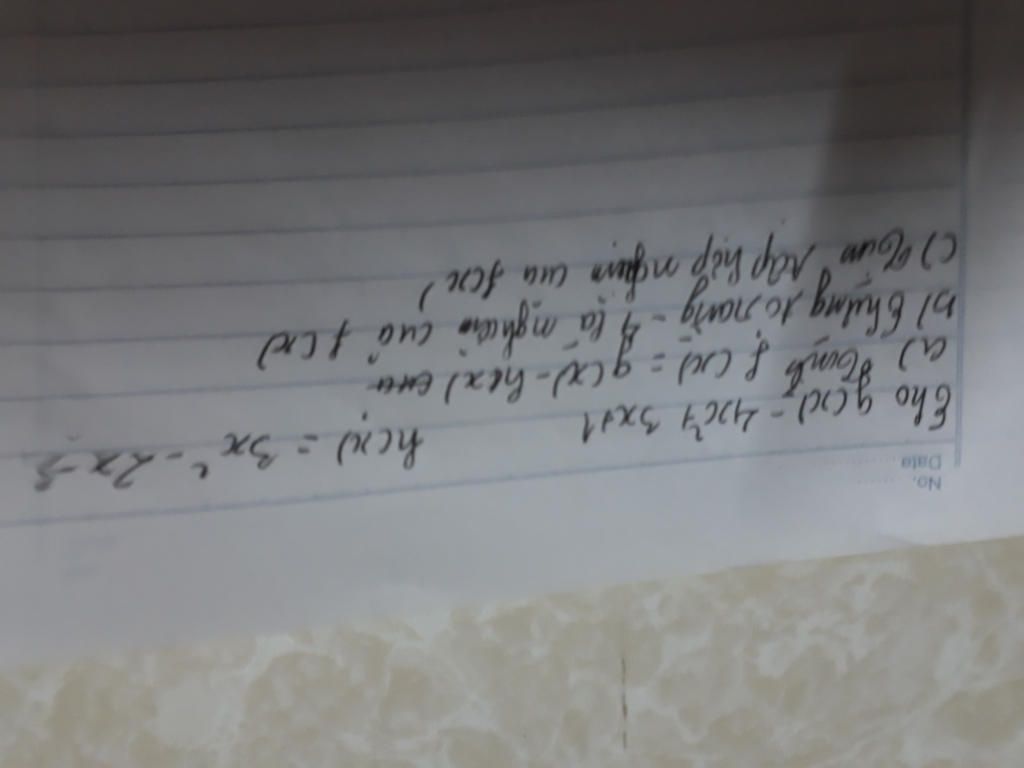 No.
Date
Cho g(x) = 4x² + 3x+1 h(x) = 3x² - 2x - 3
a) Tính f(x) = g(x) - h(x)
b) Chứng tỏ rằng - 4 là nghiệm của f(x)
c) Tìm tập hợp nghiệm của f(x)